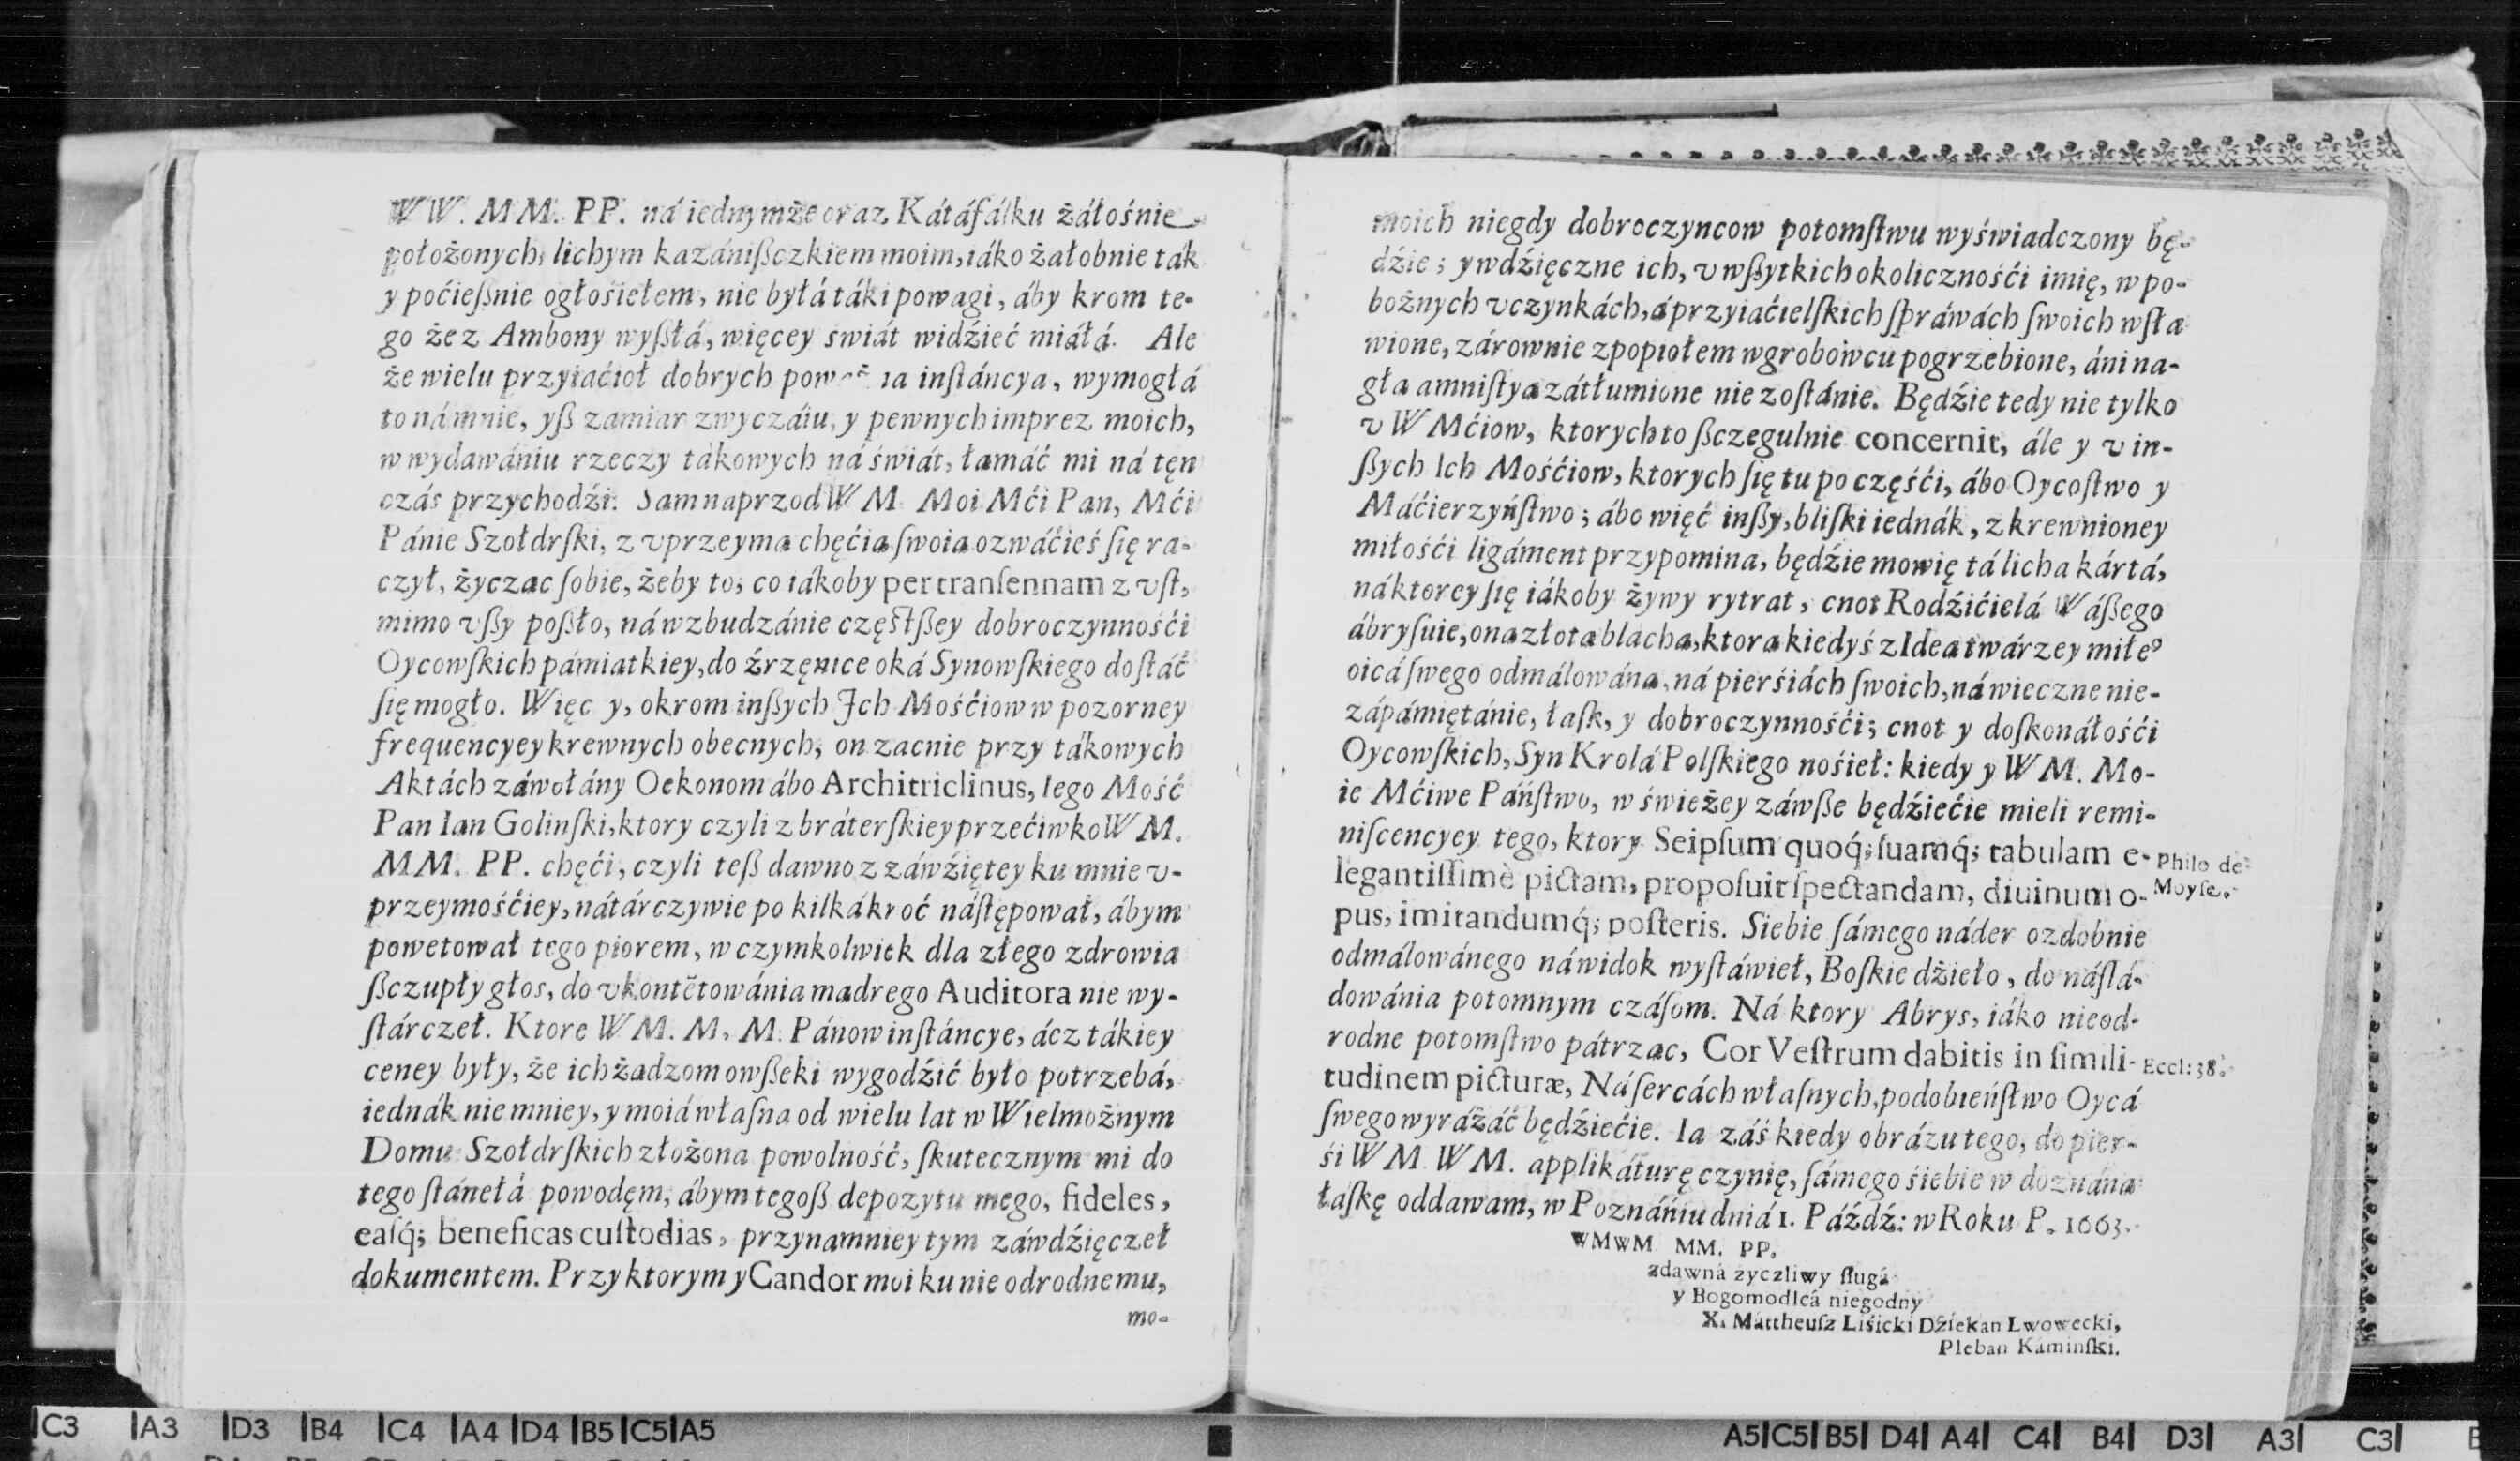 WW. MM. PP. ná iednymże oraz Kátáfálku żáłośnie
położonych, lichym kazánißczkiem moim, iáko żałobnie ták
y poćießnie ogłośiełem, nie byłá táki powagi, áby krom te-
go że z Ambony wyßłá, więcey świát widźieć miáłá. Ale
że wielu przyiaćioł dobrych instáncya, wymogłá
to ná mnie, yß zamiar zwyczáiu, y pewnych imprez moich,
w wydawániu rzeczy tákowych ná świát, łamáć mi ná tęn
czás przychodźi. Sam naprzod W M. Moi Mći Pan, Mći
Pánie Szołdrſki, z vprzeyma chęćia ſwoia ozwáćieś ſię ra-
czył, życzac ſobie, żeby to, co iákoby per tranſennam z vſt,
mimo vßy poßło, ná wzbudzánie częſtßey dobroczynnośći
Oycowſkich pámiatkiey, do źrzęnice oká Synowſkiego doſtáć
ſię mogło. Więc y, okrom inßych Jch Mośćiow w pozorney
frequencyey krewnych obecnych, on zacnie przy tákowych
Aktách záwołány Oekonom ábo Architriclinus, Iego Mość
Pan Ian Golinſki, ktory czyli z bráterſkiey przećiwko W M.
MM. PP. chęći, czyli teß dawno z záwźiętey ku mnie v-
przeymośćiey, nátárczywie po kilkákroć náſtępował, ábym
powetował tego piorem, w czymkolwiek dla złego zdrowia
ßczupły głos, do vkontētowánia madrego Auditora nie wy-
ſtárczeł. Ktore W M. M. M. Pánow inſtáncye, ácz tákiey
ceney były, że ich żadzom owßeki wygodźić było potrzebá,
iednák nie mniey, y moiá właſna od wielu lat w Wielmożnym
Domu Szołdrſkich złożona powolność, ſkutecznym mi do
tego ſtánełá powodęm, ábym tegoß depozytu mego, fideles,
eaſq́; beneficas cuſtodias, przynamniey tym záwdźięczeł
dokumentem. Przy ktorym y Candor moi ku nie odrodnemu,
mo-
moich niegdy dobroczyncow potomſtwu wyświadczony bę-
dźie; y wdźięczne ich, v wßytkich okolicznośći imię, w po-
bożnych vczynkách, á przyiaćielſkich ſpráwách ſwoich wſła
wione, zárownie z popiołem w grobowcu pogrzebione, áni na-
gła amniſtya zátłumione nie zoſtánie. Będźie tedy nie tylko
v W Mćiow, ktorych to ßczegulnie concernit, ále y v in-
ßych Ich Mośćiow, ktorych ſię tu po częśći, ábo Oycoſtwo y
Máćierzyńſtwo; ábo więć inßy, bliſki iednák, z krewnioney
miłośći ligáment przypomina, będźie mowię tá licha kártá,
ná ktorey ſię iákoby żywy rytrat, cnot Rodźićielá Wáßego
ábryſuie, ona złota blacha, ktora kiedyś z Idea twárzey miłeº
oicá ſwego odmálowána, ná pierśiách ſwoich, ná wieczne nie-
zápámiętánie, łaſk, y dobroczynnośći; cnot y doſkonáłośći
Oycowſkich, Syn Krolá Polſkiego nośieł: kiedy y W M. Mo-
ie Mćiwe Páńſtwo, w świeżey záwße będźiećie mieli remi-
niſcencyey tego, ktory Seipſum quoq́; ſuamq́; tabulam e-
Philo de
legantiſſimè pictam, propoſuit ſpectandam, diuinum o-
Moyſe.
pus, imitandumq́; poſteris. Siebie ſámego náder ozdobnie
odmálowánego ná widok wyſtáwieł, Boſkie dźieło, do náſlá-
dowánia potomnym czáſom. Ná ktory Abrys, iáko nieod-
rodne potomſtwo pátrzac, Cor Veſtrum dabitis in ſimili-
Eccl: 38.
tudinem picturæ, Ná ſercách właſnych, podobieńſtwo Oycá
ſwego wyráżáć będźiećie. Ia záś kiedy obrázu tego, do pier-
śi W M W M. applikáturę czynię, ſámego śiebie w doznána
łaſkę oddawam, w Poznániu dniá 1. Páźdź: w Roku P. 1663.
WMWM MM. PP.
zdawná życzliwy ſługá
y Bogomodlcá niegodny
X. Mattheuſz Liśicki Dźiekan Lwowecki,
Pleban Káminſki.
C3 A3 D3 B4 C4 A4 D4 B5 C5 A5
A5 C5 B5 D4 A4 C4 B4 D3 A3 C3